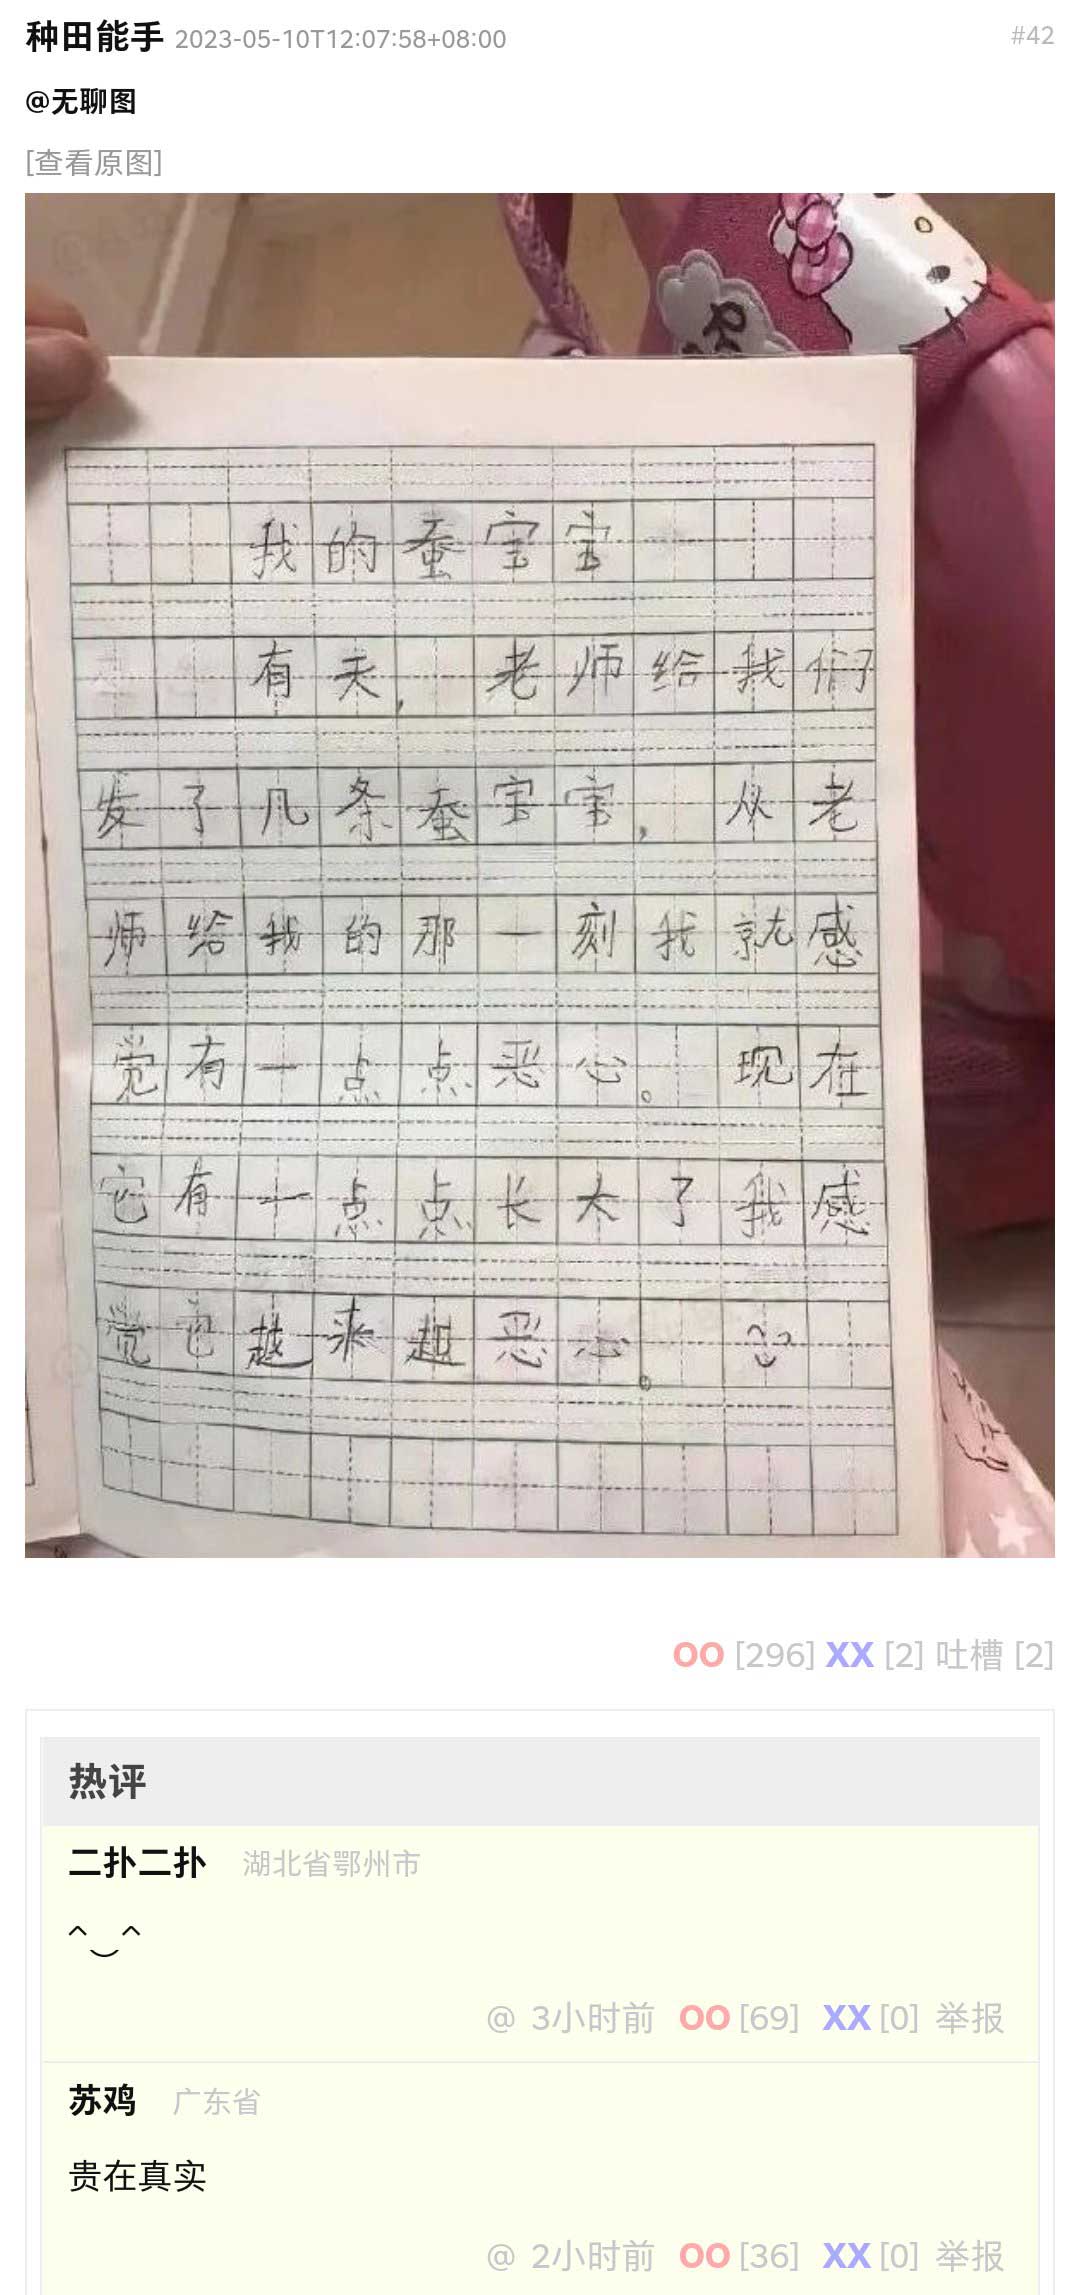 种田能手 2023-05-10T12:07:58+08:00 #42
@无聊图
[查看原图]
我的蚕宝宝
有天，老师给我们
发了几条蚕宝宝，从老
师给我的那一刻我就感
觉有一点点恶心。现在
它有一点点长大了我感
觉它越来越恶心。
OO [296] XX [2] 吐槽 [2]
热评
二扑二扑 湖北省鄂州市
^‿^
@ 3小时前 OO [69] XX [0] 举报
苏鸡 广东省
贵在真实
@ 2小时前 OO [36] XX [0] 举报